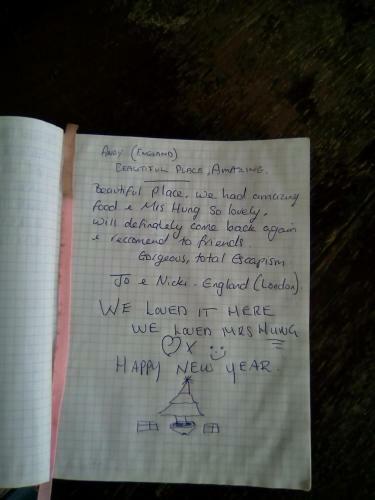 ANDY (ENGLAND)
BEAUTIFUL PLACE, AMAZING.
Beautiful place. We had amazing
food & Mrs Hung So lovely.
will definately come back again
& reccomend to friends
Gorgeous, total Escapism
Jo & Nicki - England (London).
WE LOVED IT HERE
WE LOVED MRS HUNG
X
HAPPY NEW YEAR.